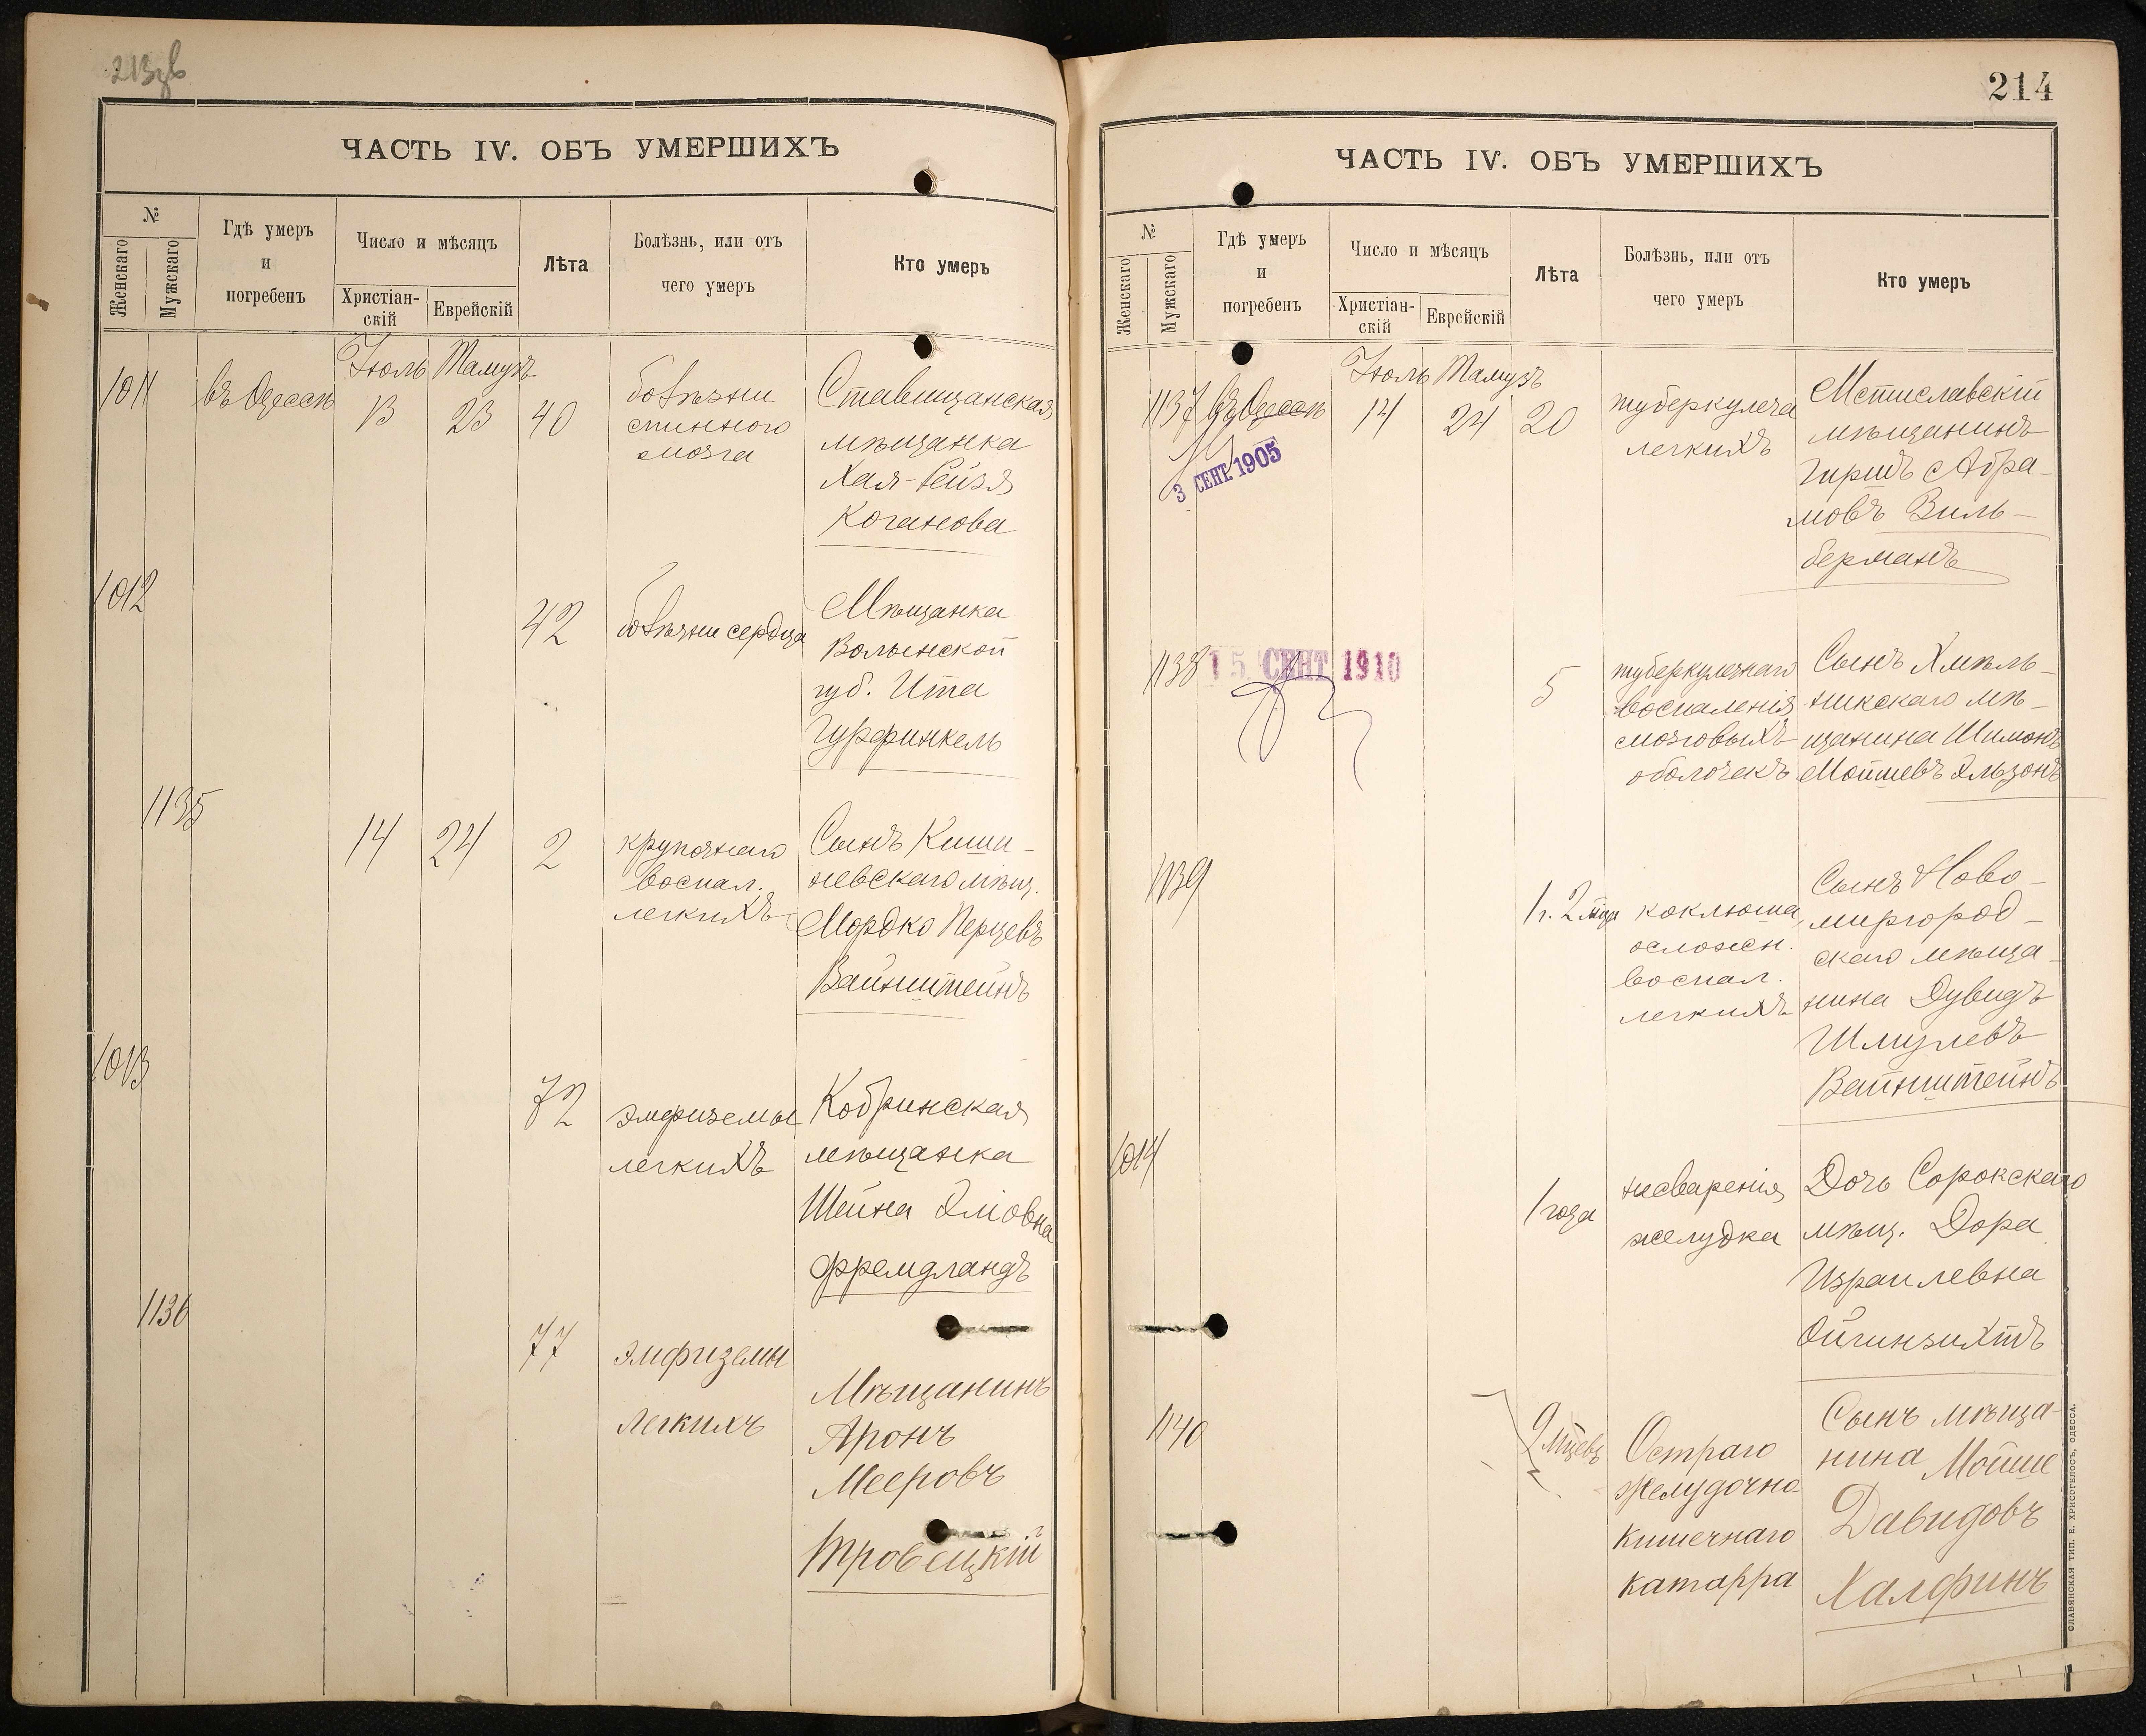 213об
ЧАСТЬ IV. ОБЪ УМЕРШИХЪ
№
Женскаго
Мужскаго
Гдѣ умеръ
и
погребенъ
Число и мѣсяцъ
Христіан-
скій
Еврейскій
Лѣта
Болѣзнь, или отъ
чего умеръ
Кто умеръ
Іюль Тамузъ
1011
въ Одессѣ
13
23
40
болѣзни
спинного
мозга
Ставищанская
мѣщанка
Хая-Рейзя
Коганова
1012
42
болѣзни сердца
Мѣщанка
Волынской
губ. Ита
Гурфинкель
1135
14
24
2
крупознаго
воспал.
легкихъ
Сынъ Киши-
невскаго мѣщ.
Мордко Перцевъ
Вайнштейнъ
1013
72
эмфиземы
легкихъ
Кобринская
мѣщанка
Шейна Эліовна
Фремдландъ
1136
77
эмфиземы
легкихъ
Мѣщанинъ
Аронъ
Мееровъ
214
ЧАСТЬ IV. ОБЪ УМЕРШИХЪ
№
Женскаго
Мужскаго
Гдѣ умеръ
и
погребенъ
Число и мѣсяцъ
Христіан-
скій
Еврейскій
Лѣта
Болѣзнь, или отъ
чего умеръ
Кто умеръ
Іюль Тамузъ
1137
въ Одессѣ
3 СЕНТ. 1905
14
24
20
туберкулеза
легкихъ
Мстиславскій
мѣщанинъ
Гиршъ Абра-
мовъ Зиль-
берманъ
1138
15 СЕНТ 1910
5
туберкулезнаго
воспаленія
мозговыхъ
оболочекъ
Сынъ Хмѣль-
никскаго мѣ-
щанина Шимонъ
Мойшевъ Эльзонъ
1139
1 г. 2 мѣц
коклюша,
осложн.
воспал.
легкихъ
Сынъ Ново-
миргород-
скаго мѣща-
нина Дувидъ
Шмулевъ
Вайнштейнъ
1014
1 года
несваренія
желудка
Дочь Сорокскаго
мѣщ. Дора
Израилевна
Ойгинзихтъ
1140
9 мѣцевъ
Остраго
желудочно-
кишечнаго
катарра
Сынъ мѣща-
нина Мойше
Давидовъ
Халфинъ
СЛАВЯНСКАЯ ТИП. Е. ХРИСОГЕЛОСЪ, ОДЕССА.